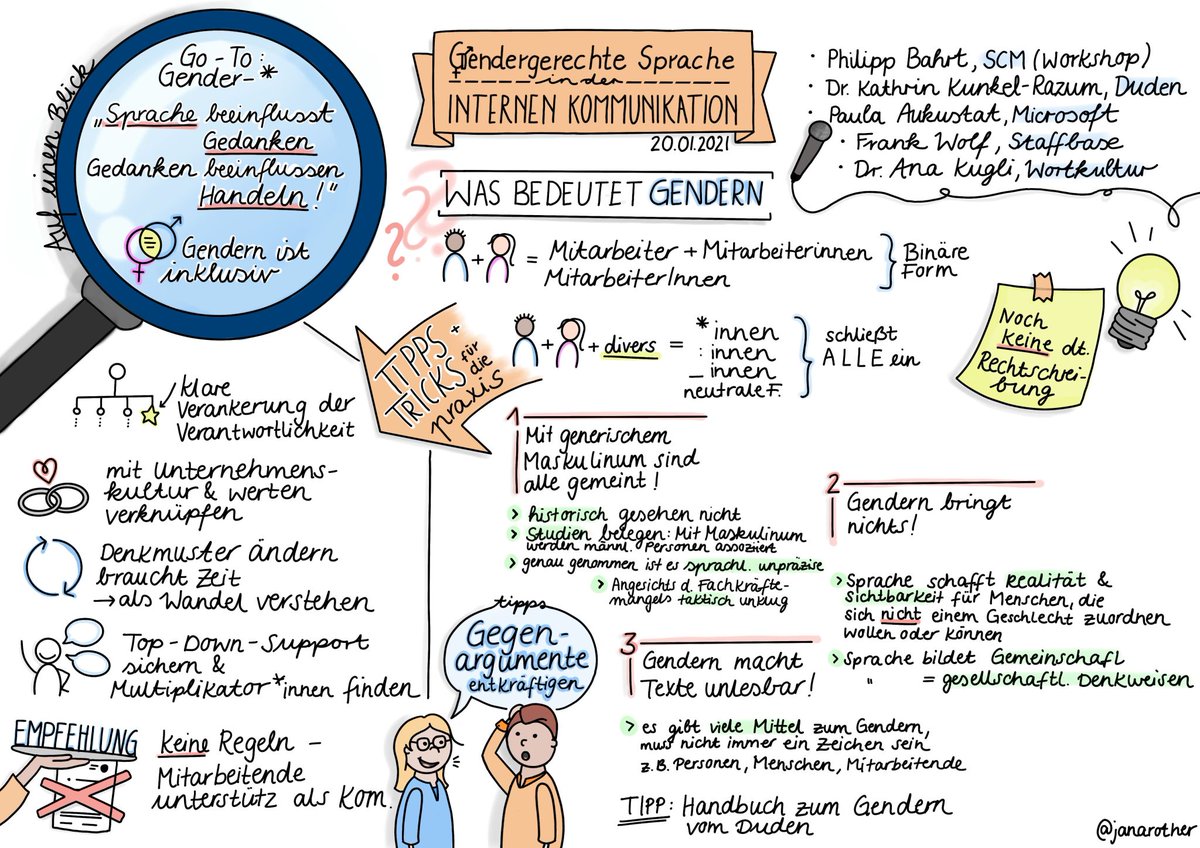 Auf einen Blick
Go-To:
Gender-*
„Sprache beeinflusst
Gedanken
Gedanken beeinflussen
Handeln!"
Gendern ist
inklusiv
Gendergerechte Sprache
in der
INTERNEN KOMMUNIKATION
20.01.2021
· Philipp Bahrt, SCM (Workshop)
· Dr. Kathrin Kunkel-Razum, Duden
· Paula Aukustat, Microsoft
· Frank Wolf, Staffbase
· Dr. Ana Kugli, Wortkultur
???
WAS BEDEUTET GENDERN
+ = Mitarbeiter + Mitarbeiterinnen
MitarbeiterInnen
} Binäre
Form
+ + divers = *innen
:innen
_innen
neutrale F.
} schließt
ALLE ein
Noch
keine dt.
Rechtschrei-
bung
TIPPS +
TRICKS für
die
praxis
klare
Verankerung der
Verantwortlichkeit
mit Unternehmens-
kultur & werten
verknüpfen
Denkmuster ändern
braucht Zeit
→ als Wandel verstehen
Top-Down-Support
sichern &
Multiplikator*innen finden
EMPFEHLUNG
keine Regeln –
Mitarbeitende
unterstütz als Kom.
tipps
Gegen-
argumente
entkräftigen
1
Mit generischem
Maskulinum sind
alle gemeint!
> historisch gesehen nicht
> Studien belegen: Mit Maskulinum
werden männl. Personen assoziiert
> genau genommen ist es sprachl. unpräzise
> Angesichts d. Fachkräfte-
mangels taktisch unklug
2
Gendern bringt
nichts!
> Sprache schafft Realität &
Sichtbarkeit für Menschen, die
sich nicht einem Geschlecht zuordnen
wollen oder können
> Sprache bildet Gemeinschaft
" = gesellschaftl. Denkweisen
3
Gendern macht
Texte unlesbar!
> es gibt viele Mittel zum Gendern,
muss nicht immer ein Zeichen sein
z.B. Personen, Menschen, Mitarbeitende
TIPP: Handbuch zum Gendern
vom Duden
@janarother